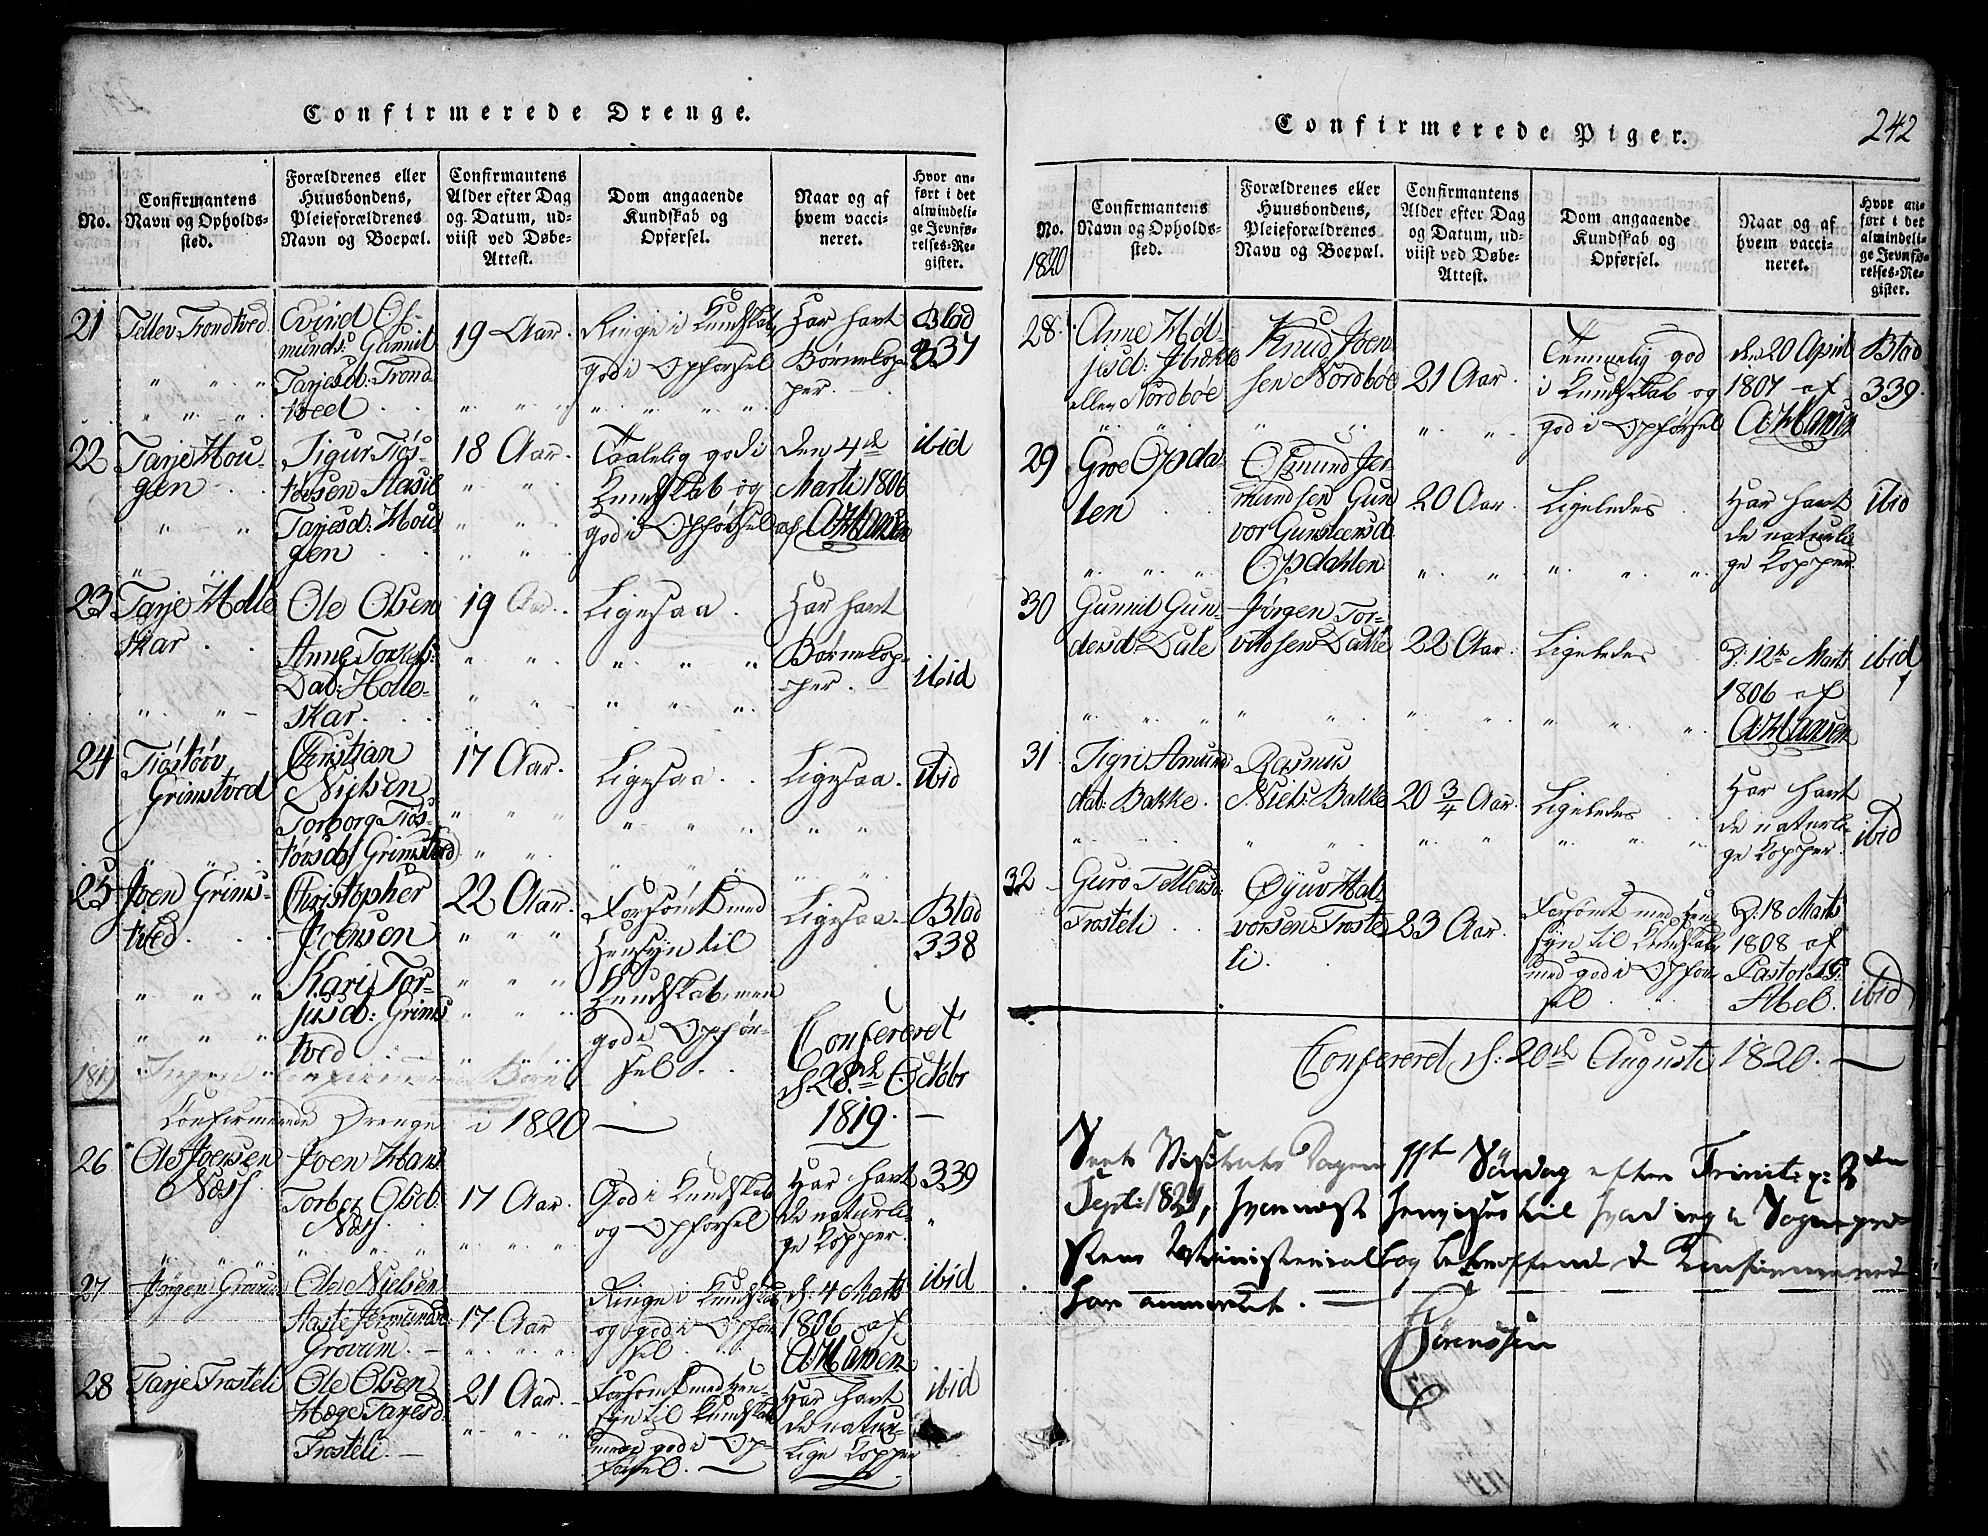 Confirmerede Drenge.
No.
Confirmantens
Navn og Opholds-
sted.
Forældrenes eller
Huusbondens,
Pleieforældrenes
Navn og Boepæl.
Confirmantens
Alder efter Dag
og Datum, ud-
viist ved Døbe-
Attest.
Dom angaaende
Kundskab og
Opførsel.
Naar og af
hvem vacci-
neret.
Hvor an-
ført i det
almindeli-
ge Jevnfø-
relses-Re-
gister.
21
Tellev Trondtved
Evind Os-
munds: Gunnil
Tarjesd: Trond-
tveed
19 Aar.
Ringe i Kundskab
god i Opførsel
Har havt
Børnekop-
per.
Blad
337
22
Tarje Hou-
gen
Sigur Tiøs-
tøvsen Aasil
Tarjesd: Hou-
gen
18 Aar.
Taalelig god i
Kundskab og
god i Opførsel
den 4de
Marti 1806
af A. Hansen
ibid
23
Tarje Holle
skar
Ole Olsen
Anne Torkels:
Dat: Holle-
skar.
19 Aar.
Ligesaa.
Har havt
Børnekop-
per.
ibid
24
Tiøstøøv
Grimstved
Christian
Nielsen
Torborg Tiøs-
tøvsdat Grimstved
17 Aar.
Ligesaa.
Ligesaa.
ibid
25
Joen Grims-
tved
Christopher
Joensen
Kari Tor-
jusd: Grims
tved
22 Aar.
Forsømt med
Hensyn til
Kundskab, men
god i Opfør-
sel.
Ligesaa.
Blad
338
Confereret
d. 28de Octobr
1819.
1819
Confirmerede Drenge i 1820
26
Ole Joensen
Næss.
Joen Hans
Torber Olsd:
Næss
17 Aar.
God i Kundskab
og Opførsel
Har havt
de naturli-
ge Kopper.
339
27
Jørgen Grovum
Ole Nielsen
Aaste Jermundsd
Grovum.
17 Aar
Ringe i Kundskab
og god i Opfør-
sel.
d: 4 Marts
1806 af
A. Hansen
ibid
28
Tarje Frosteli
Ole Olsen
Hæge Tarjesd
Frosteli.
21 Aar.
Forsømt med Hen-
syn til Kundskab
men god i Op-
førsel.
Har havt
de natur-
lige Kopper
ibid
Confirmerede Piger.
242
No.
1820
Confirmantens
Navn og Opholds-
sted.
Forældrenes eller
Huusbondens,
Pleieforældrenes
Navn og Boepæl.
Confirmantens
Alder efter Dag
og Datum, ud-
viist ved Døbe-
Attest.
Dom angaaende
Kundskab og
Opførsel.
Naar og af
hvem vacci-
neret.
Hvor an-
ført i det
almindeli-
ge Jevnfø-
relses-Re-
gister.
28.
Anne Høl-
jesd:
eller Nordbøe
Knud Joen-
sen Nordbøe
21 Aar.
Temmelig god
i Kundskab og
god i Opførsel
den 20 April
1807 af
A. Hansen
Blad
339.
29
Groe Opsda-
len
Osmund Jer-
mundsen Gun
vor Gunsteensd
Opsdahlen
20 Aar.
Ligeledes
Har havt
de naturli-
ge Kopper.
ibid
30
Gunnil Gun-
dersd: Dale
Jørgen Tor-
vildsen Dahle
22 Aar.
Ligeledes
D: 12te Marts
1806 af
A. Hansen
ibid
31
Sigri Amund
dat: Bakke.
Rasmus
Niels: Bakke
20 3/4 Aar.
Ligeledes
Har havt
de naturli-
ge Kopper.
ibid
32
Guro Tellevsd
Frosteli
Øyuv Hal-
vorsen Froste
li.
23 Aar.
Forsømt med Hen-
syn til Kundskab
men god i Opfør-
sel
D: 18 Marts
1808 af
Pastor
Abel.
ibid
Confereret d: 20de Augusti 1820.
Seet Visitats Dagen 11te Søndag efter Trinit: p: 2den
Sept: 1821, hvornæst henvises til hvad jeg i Sognepræ-
stens Ministerialbog betræffende de Confirmerede
har anmerket.
Sørenssen